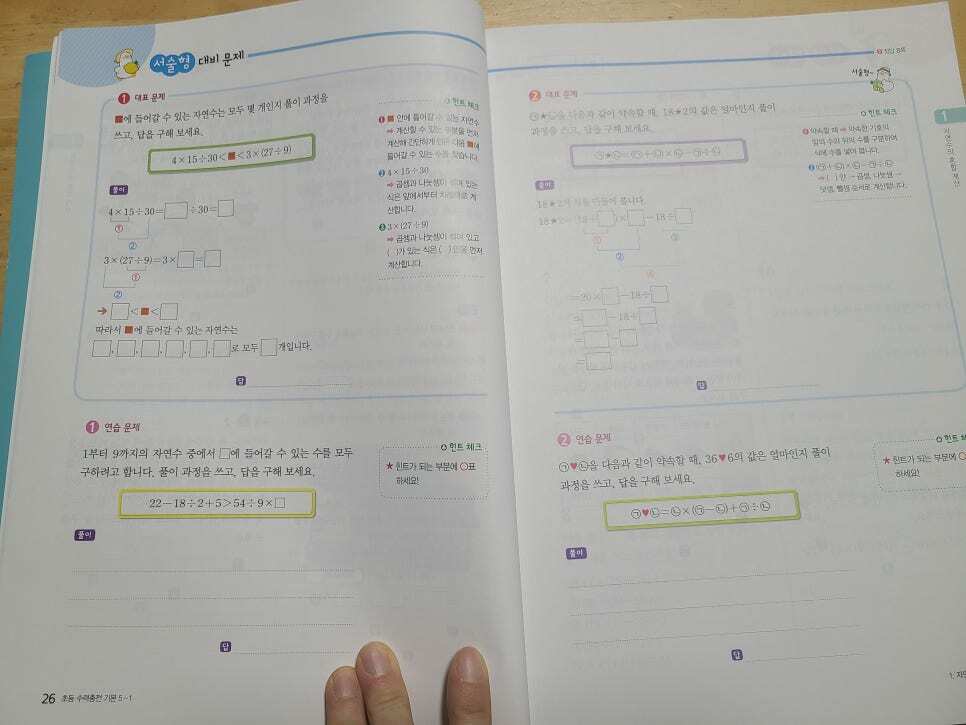 서술형 대비 문제
1 대표 문제
■에 들어갈 수 있는 자연수는 모두 몇 개인지 풀이 과정을
쓰고, 답을 구해 보세요.
4×15÷30<■<3×(27÷9)
풀이
4×15÷30=□÷30=□
①
②
3×(27÷9)=3×□=□
①
②
➔ □<■<□
따라서 ■에 들어갈 수 있는 자연수는
□, □, □, □, □, □로 모두 □개입니다.
답
힌트 체크
❶ ■ 안에 들어갈 수 있는 자연수
➡ 계산할 수 있는 부분을 먼저
계산해 간단하게 만든 다음 ■에
들어갈 수 있는 수를 찾습니다.
❷ 4×15÷30
➡ 곱셈과 나눗셈이 섞여 있는
식은 앞에서부터 차례대로 계
산합니다.
❸ 3×(27÷9)
➡ 곱셈과 나눗셈이 섞여 있고
( )가 있는 식은 ( ) 안을 먼저
계산합니다.
1 연습 문제
1부터 9까지의 자연수 중에서 □에 들어갈 수 있는 수를 모두
구하려고 합니다. 풀이 과정을 쓰고, 답을 구해 보세요.
22-18÷2+5>54÷9×□
힌트 체크
★ 힌트가 되는 부분에 ○표
하세요!
풀이
답
26 초등 수력충전 기본 5-1
정답
서술형
2 대표 문제
㉠★㉡을 다음과 같이 약속할 때, 18★2의 값은 얼마인지 풀이
과정을 쓰고, 답을 구해 보세요.
㉠★㉡=(㉠+㉡)×㉡-㉠÷㉡
풀이
18★2의 식을 만들어 봅니다.
18★2=(18+□)×□-18÷□
①
②
③
④
=20×□-18÷□
=□-18÷□
=□-□
=□
답
힌트 체크
❶ 약속할 때 ➡ 약속한 기호의
앞의 수와 뒤의 수를 구분하여
식에 수를 넣어 봅니다.
❷ (㉠+㉡)×㉡-㉠÷㉡
➡ ( ) 안 → 곱셈, 나눗셈 →
덧셈, 뺄셈 순서로 계산합니다.
1
자연수의 혼합 계산
2 연습 문제
㉠♥㉡을 다음과 같이 약속할 때, 36♥6의 값은 얼마인지 풀이
과정을 쓰고, 답을 구해 보세요.
㉠♥㉡=㉡×(㉠-㉡)+㉠÷㉡
힌트 체크
★ 힌트가 되는 부분에 ○
하세요!
풀이
답